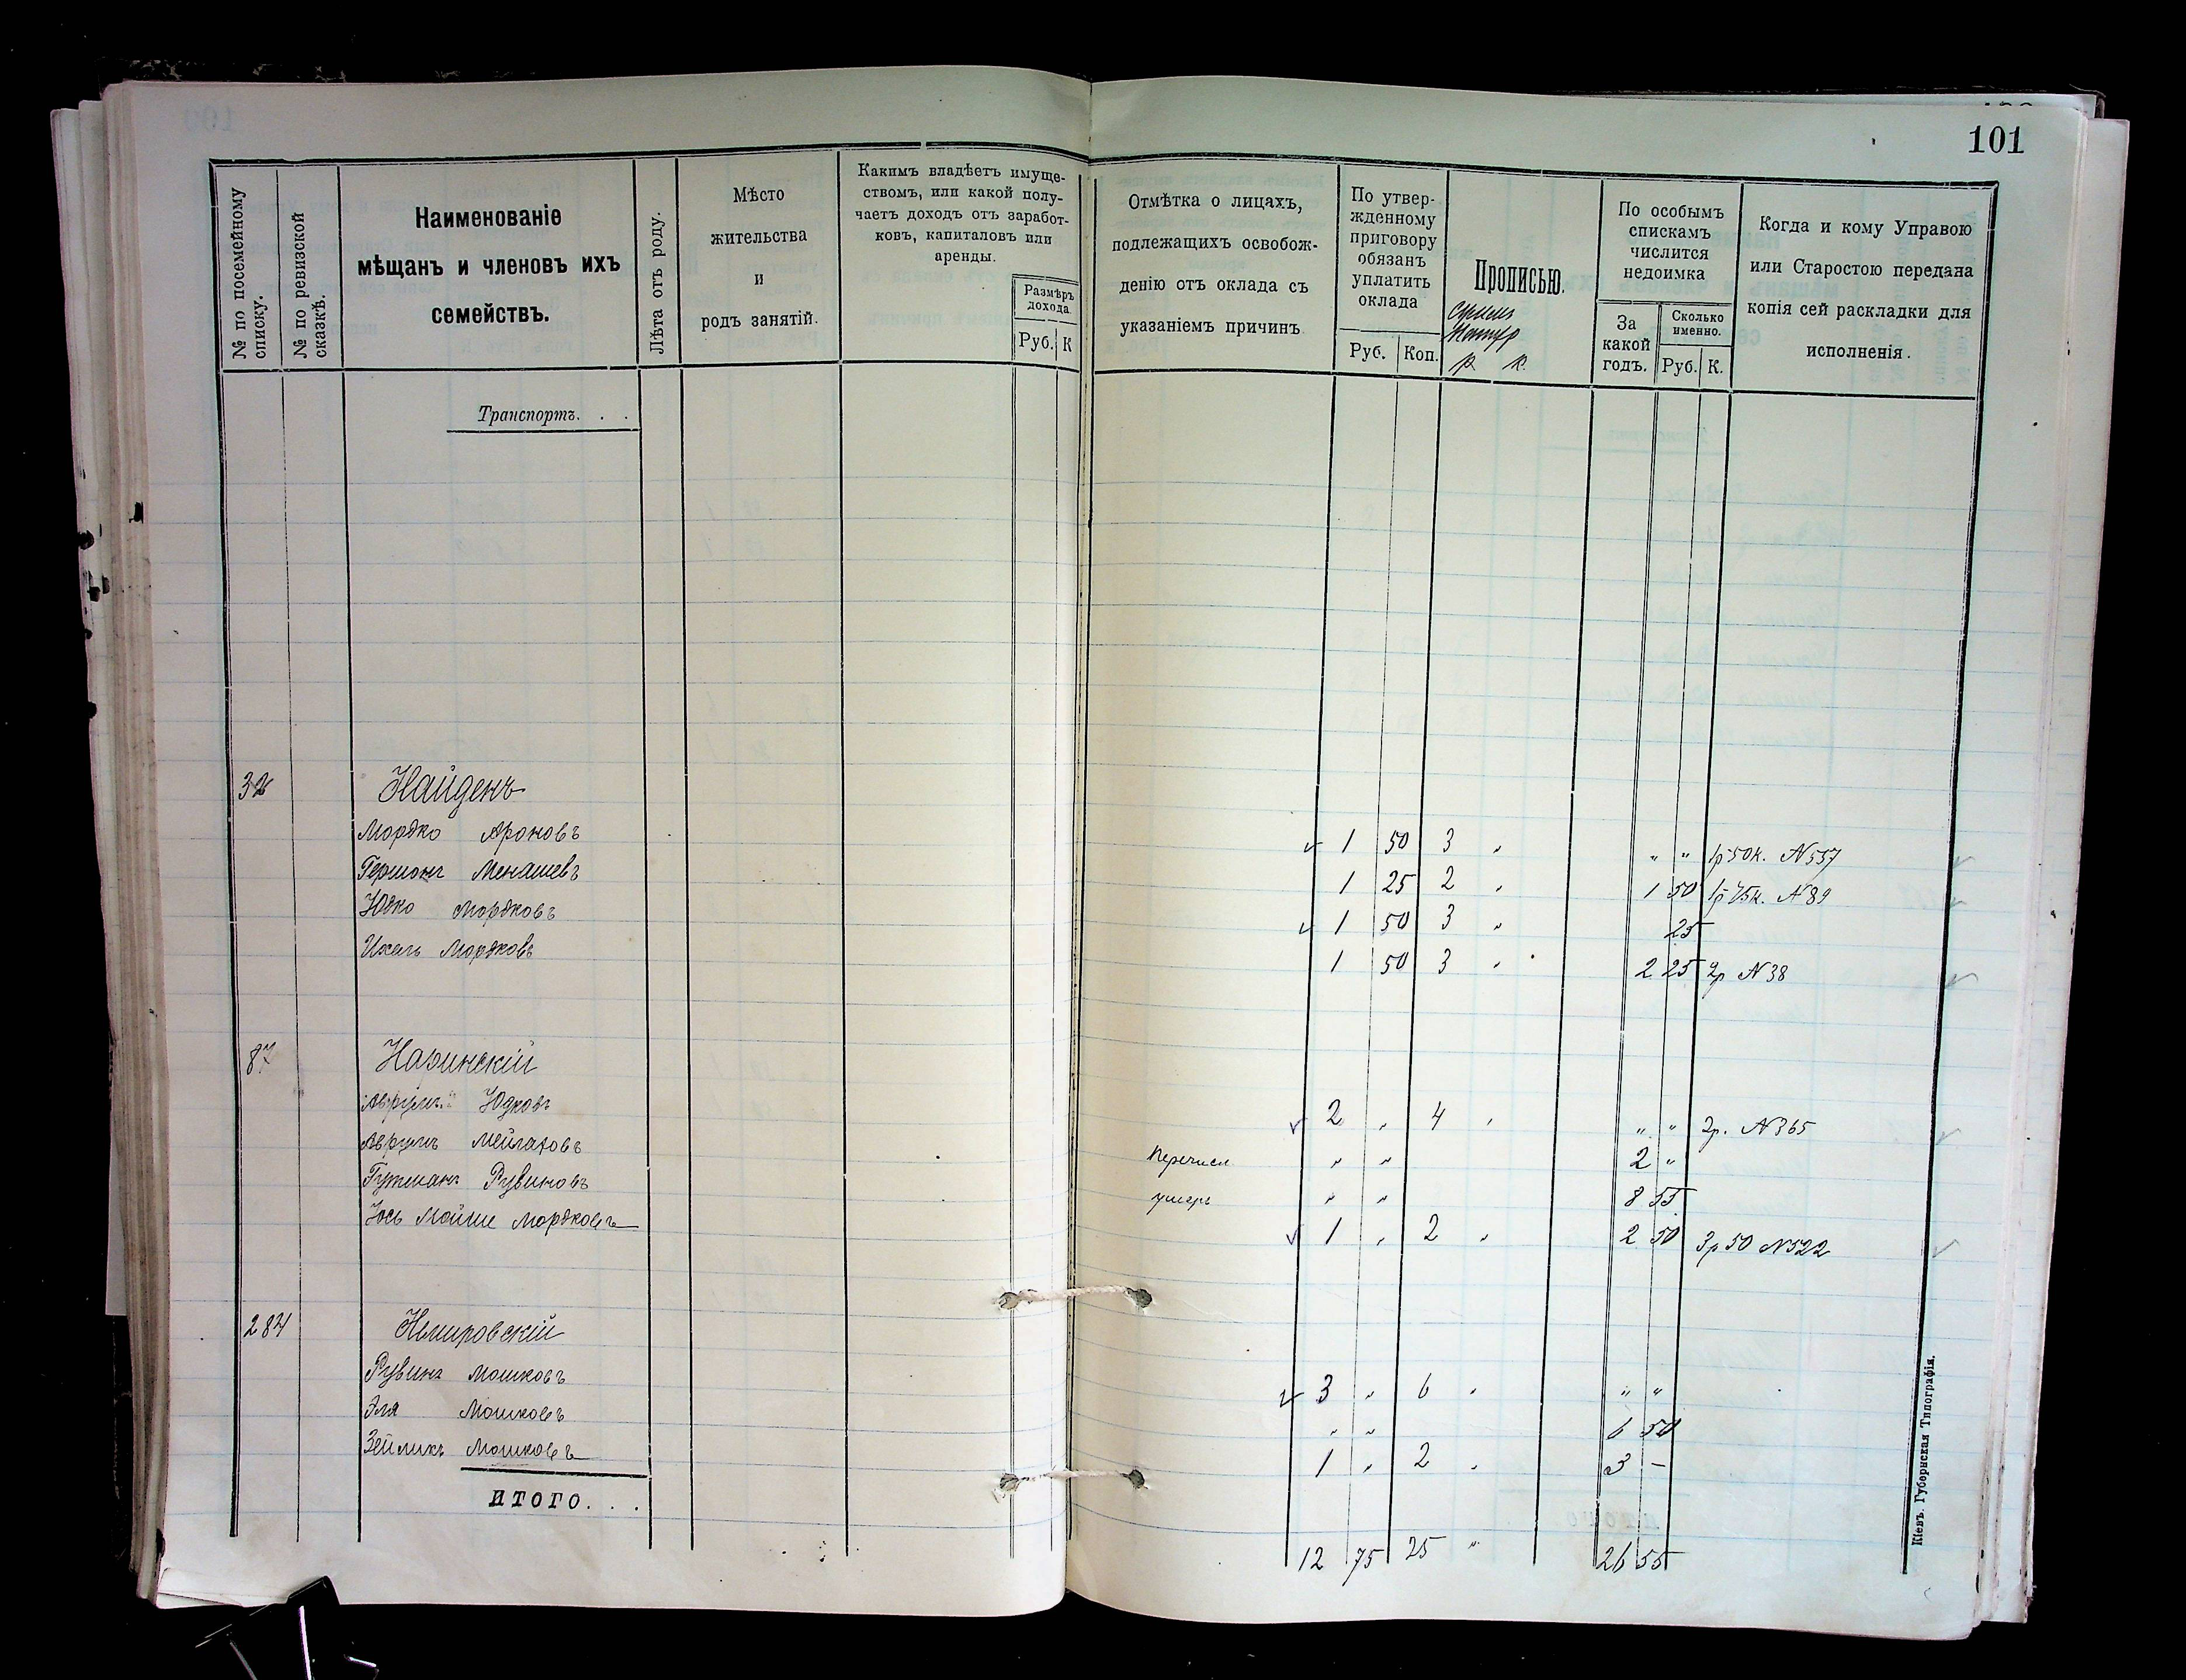 101
№ по посемейному списку.
№ по ревизской сказкѣ.
Наименованіе
мѣщанъ и членовъ ихъ
семействъ.
Лѣта отъ роду.
Мѣсто
жительства
и
родъ занятій.
Какимъ владѣетъ имуще-
ствомъ, или какой полу-
чаетъ доходъ отъ заработ-
ковъ, капиталовъ или
аренды.
Размѣръ
дохода
Руб. К
Отмѣтка о лицахъ,
подлежащихъ освобож-
денію отъ оклада съ
указаніемъ причинъ
По утвер-
жденному
приговору
обязанъ
уплатить
оклада
Руб. Коп.
Прописью.
р к.
По особымъ
спискамъ
числится
недоимка
За
какой
годъ.
Сколько
именно.
Руб. К.
Когда и кому Управою
или Старостою передана
копія сей раскладки для
исполненія.
Транспортъ. . .
32 Найденъ
Мордко Ароновъ 1 50 3 „ „ „ 1р 50к. N557
Гершонъ Менашевъ 1 25 2 „ 1 50 1р 75к. N89
Юдко Мордковъ 1 50 3 „ 25
Ихель Мордковъ 1 50 3 „ 2 25 2р N38
87 Наринскій
Аврумъ Юдковъ 2 „ 4 „ „ „ 2р. N365
Аврумъ Мейлаховъ Перечисл „ „ 2 „
Гутманъ Рувиновъ умеръ „ „ 8 55
Іось Мойше Мордковъ 1 „ 2 „ 2 50 3р 50 N522
284 Немировскій
Рувинъ Мошковъ 3 „ 6 „ „ „
Эля Мошковъ „ „ 6 50
Зейликъ Мошковъ 1 „ 2 „ 3 –
ИТОГО. . .
12 75 25 „ 26 55
Кіевъ. Губернская Типографія.